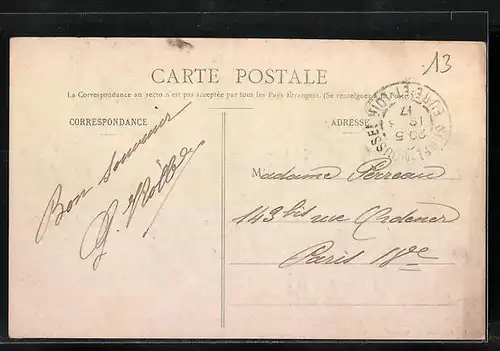 13
CARTE POSTALE
La Correspondance au recto n'est pas acceptée par tous les Pays Étrangers. (Se renseigner à la Poste)
CORRESPONDANCE
ADRESSE
EURE-ET-LOIR
20 5
17
Bon Souvenir
Madame Perreau
143 bis rue Cardener
Paris